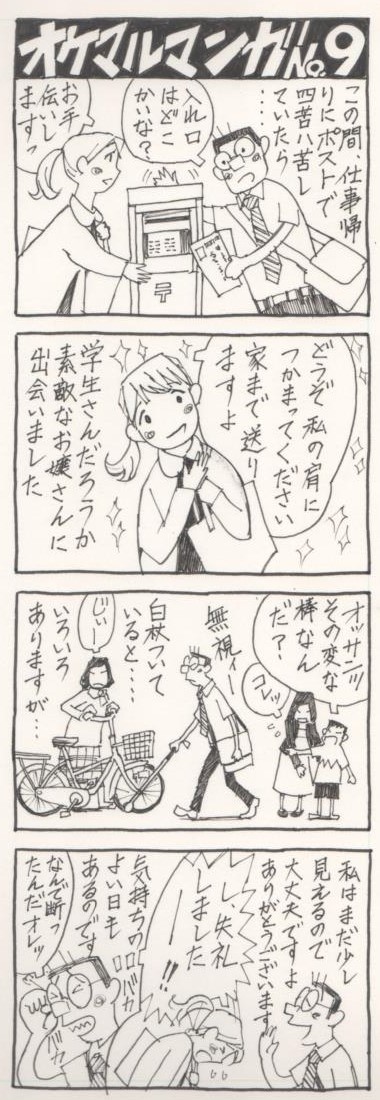 オケマルマンガNo.9
この間、仕事帰
りにポストで
四苦八苦し
ていたら
……
入れ口
はどこ
かいな?
お手
伝いし
ますっ
〒
どうぞ私の肩に
つかまってください
家まで送り
ますよ
学生さんだろうか
素敵なお嬢さんに
出会いました
オッサンッ
その変な
棒なん
だ?
コレッ
無視ィー
白杖ついて
いると‥‥
いろいろ
ありますが…
じぃー
私はまだ少し
見えるので
大丈夫ですよ
ありがとうございます
し、失礼
しました
ーー!!
気持ちの
よい日も
あるのです
なんで断っ
たんだオレッ
バカ
バカ